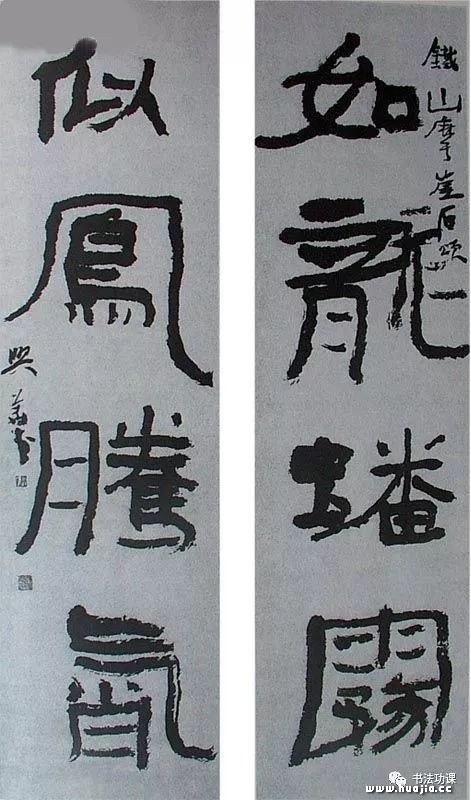 鐵山摩崖石頌
如龍蟠霧
似鳳騰霄
书法功课
www.huajia.cc